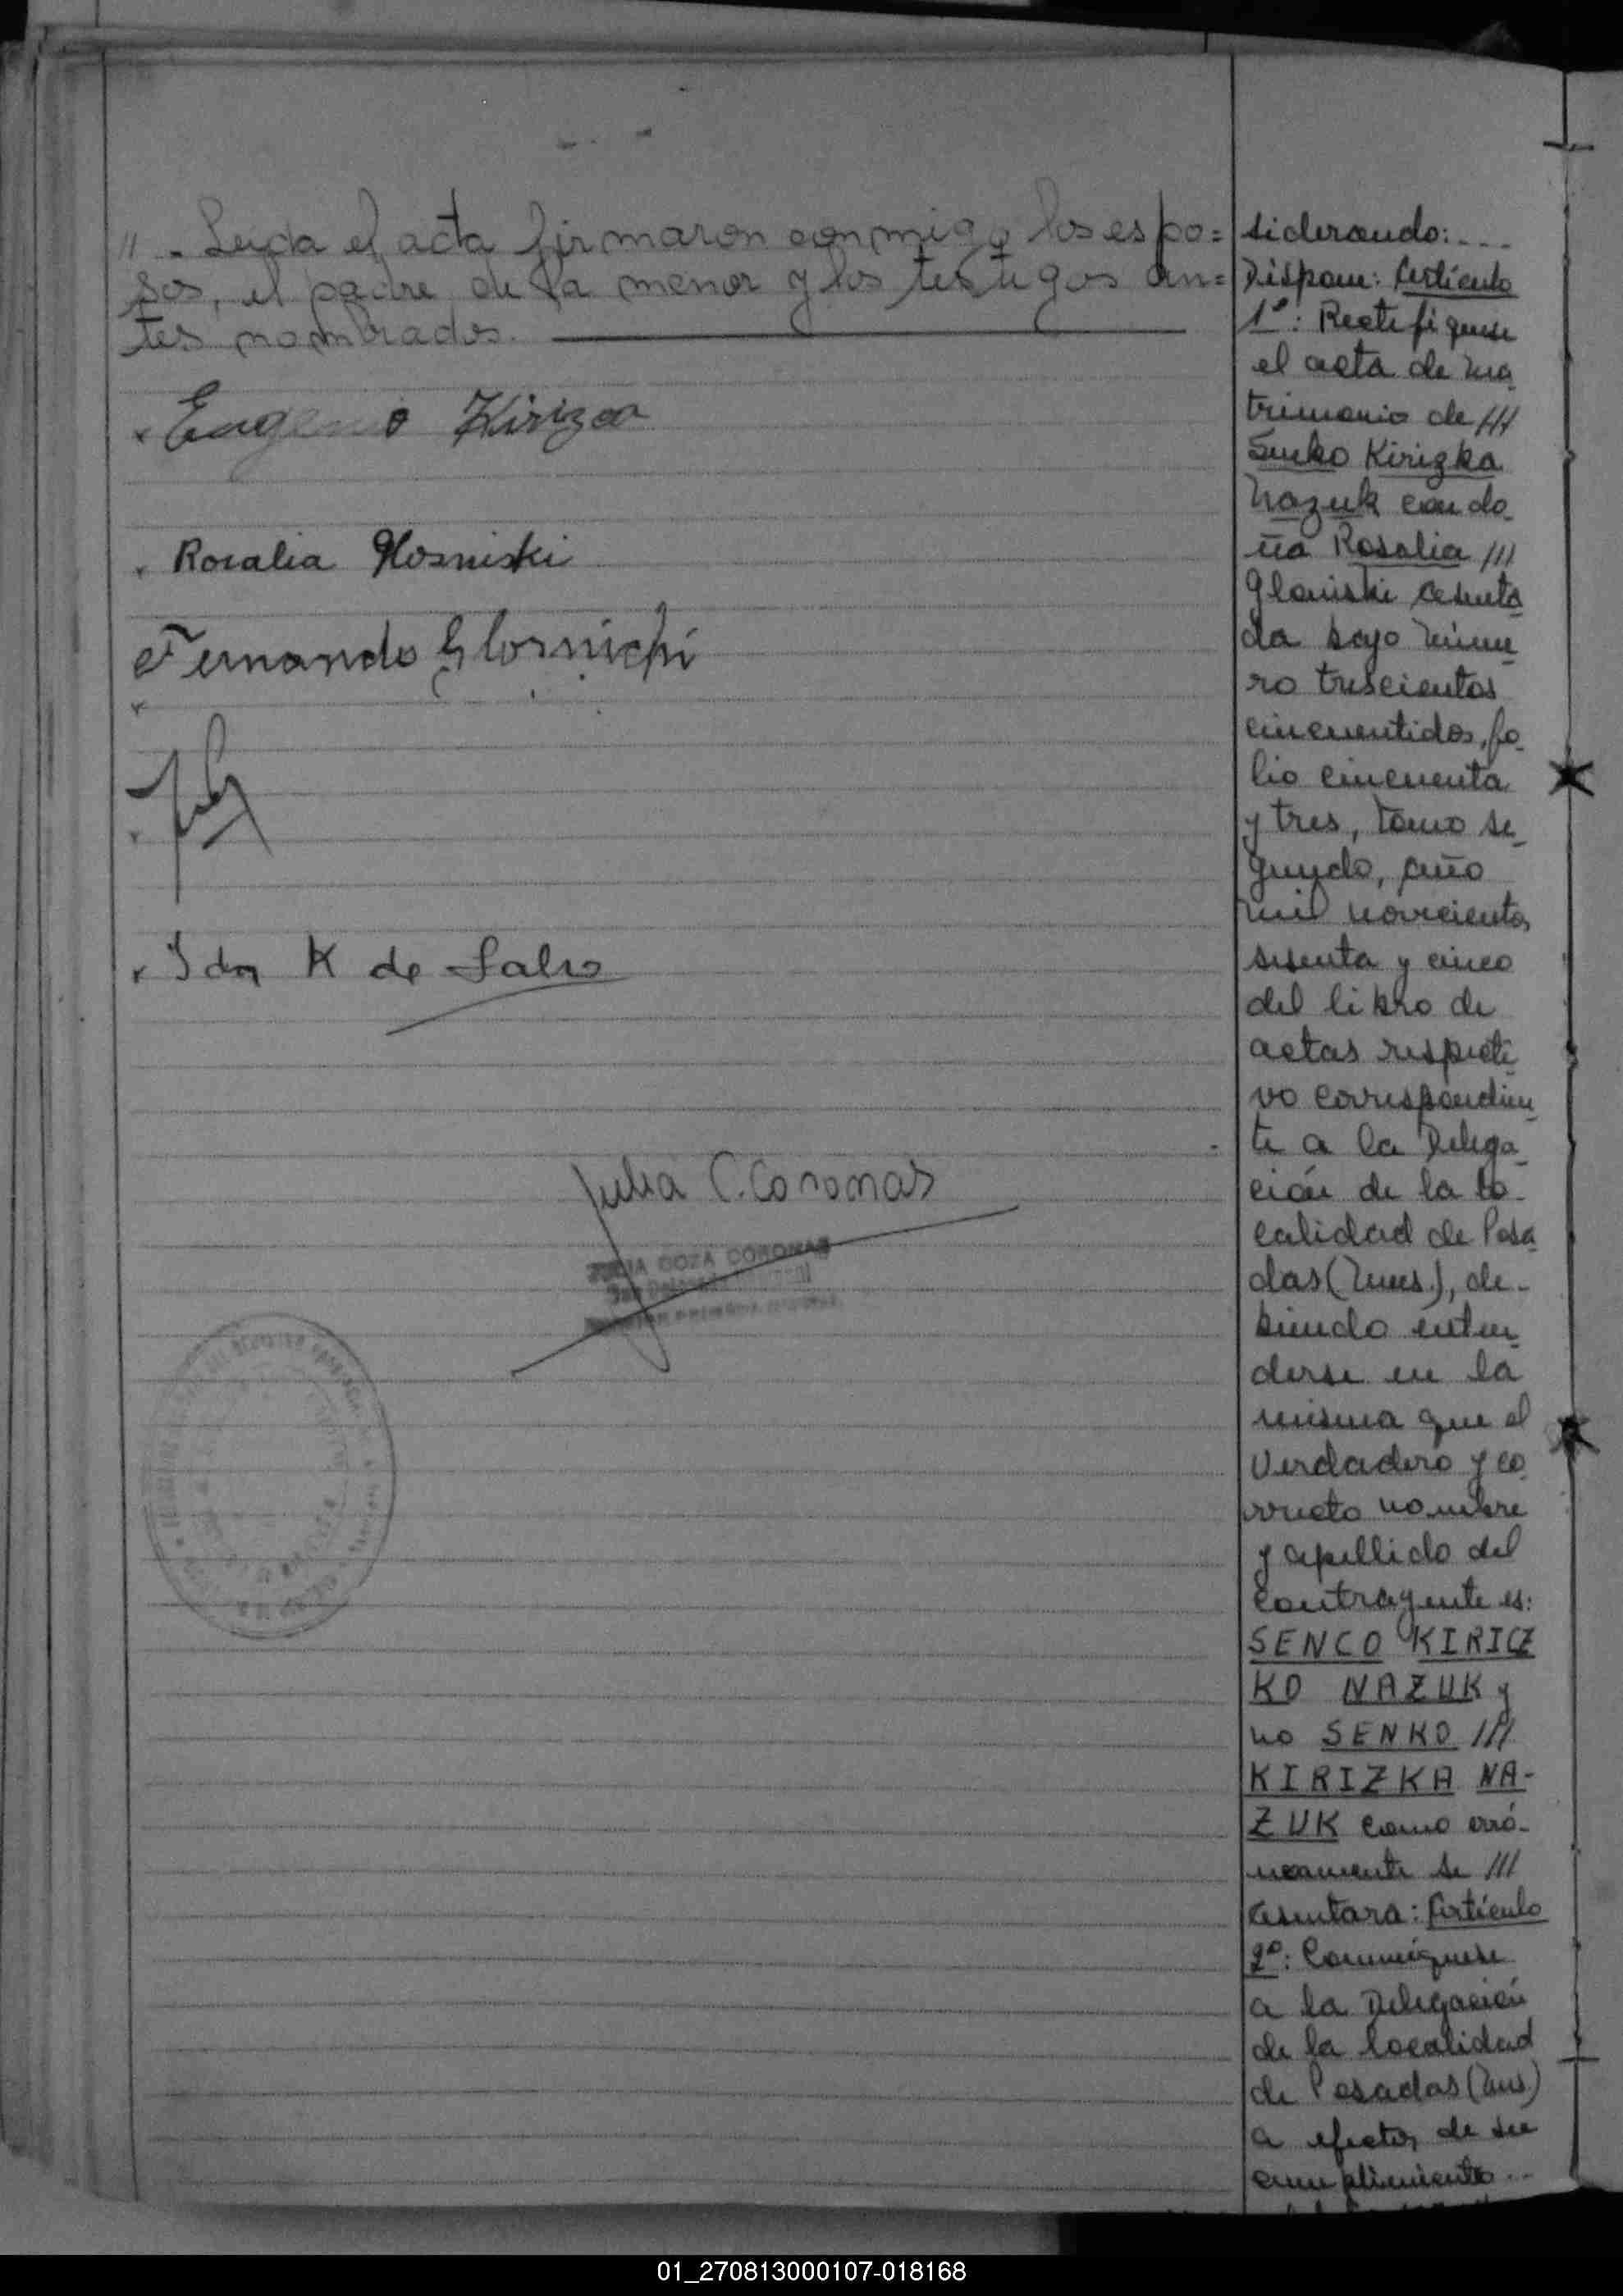 // . Leida el acta firmaron conmigo los espo=
sos, el padre de la menor y los testigos an=
tes nombrados.
Eugenio Kirizca
Rosalia Glosniski
Fernando Glosnichi
Ida K de Salvo
Julia C. Coromas
JULIA COZA COROMAS
siderando:....
Dispone: Artículo
1º: Rectifiquese
el acta de ma_
trimonio de ///
Senko Kirizka
Nazuk con do_
ña Rosalia ///
Gloniski asenta
da bajo núme_
ro trescientos
cincuentidos, fo_
lio cincuenta
y tres, tomo se_
gundo, año
mil novecientos
sesenta y cinco
del libro de
actas respecti_
vo correspondien_
te a la Delega_
ción de la lo_
calidad de Posa_
das (Mnes.), de_
biendo enten_
derse en la
misma que el
verdadero y co_
rrecto nombre
y apellido del
contrayente es:
SENCO KIRICZ
KO NAZUK y
no SENKO ///
KIRIZKA NA-
ZUK como erró-
neamente se ///
asentara: Artículo
2º: Comuníquese
a la Delegación
de la localidad
de Posadas (Mns.)
a efectos de su
cumplimiento...
01_270813000107-018168